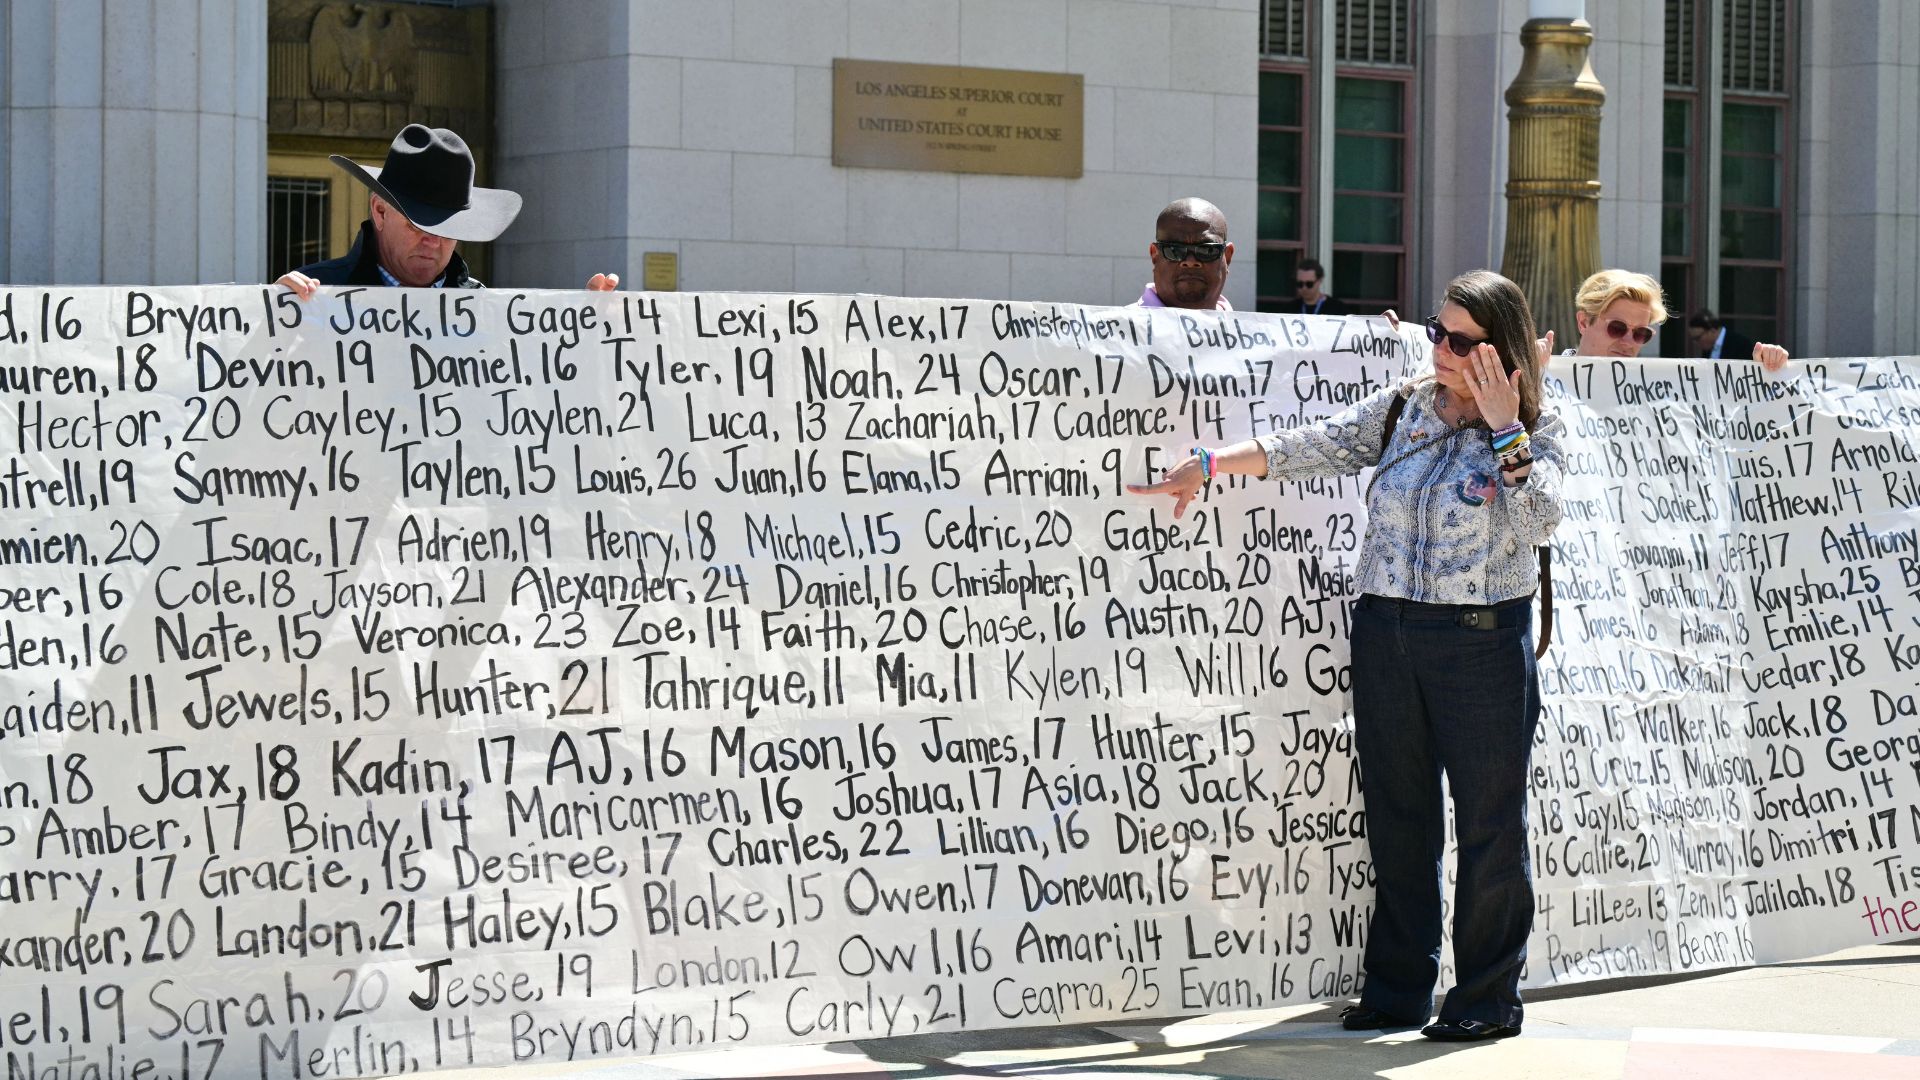 LOS ANGELES SUPERIOR COURT
AT
UNITED STATES COURT HOUSE
d, 16 Bryan, 15 Jack, 15 Gage, 14 Lexi, 15 Alex, 17 Christopher, 17 Bubba, 13 Zachary, 15
auren, 18 Devin, 19 Daniel, 16 Tyler, 19 Noah, 24 Oscar, 17 Dylan, 17 17 Parker, 14 Matthew, 12 Zach
Hector, 20 Cayley, 15 Jaylen, 21 Luca, 13 Zachariah, 17 Cadence, 14 Jasper, 15 Nicholas, 17 Jackso
ntrell, 19 Sammy, 16 Taylen, 15 Louis, 26 Juan, 16 Elana, 15 Arriani, 9 18 Haley, Luis, 17 Arnold
mien, 20 Isaac, 17 Adrien, 19 Henry, 18 Michael, 15 Cedric, 20 Gabe, 21 Jolene, 23 ames, 17 Sadie, 15 Matthew, 14 Ril
per, 16 Cole, 18 Jayson, 21 Alexander, 24 Daniel, 16 Christopher, 19 Jacob, 20 Maste oke, 17 Giovanni, 11 Jeff, 17 Anthony
den, 16 Nate, 15 Veronica, 23 Zoe, 14 Faith, 20 Chase, 16 Austin, 20 AJ, 1 andice, 15 Jonathan, 20 Kaysha, 25 B
aiden, 11 Jewels, 15 Hunter, 21 Tahrique, 11 Mia, 11 Kylen, 19 Will, 16 Ga 7 James, 16 Adam, 18 Emilie, 14
n, 18 Jax, 18 Kadin, 17 AJ, 16 Mason, 16 James, 17 Hunter, 15 Jayd ckenna, 16 Dakota, 17 Cedar, 18 Ka
Amber, 17 Bindy, 14 Maricarmen, 16 Joshua, 17 Asia, 18 Jack, 20 Von, 15 Walker, 16 Jack, 18 Da
arry, 17 Gracie, 15 Desiree, 17 Charles, 22 Lillian, 16 Diego, 16 Jessica ei, 13 Cruz, 15 Madison, 20 Georg
xander, 20 Landon, 21 Haley, 15 Blake, 15 Owen, 17 Donevan, 16 Evy, 16 Tyso , 18 Jay, 15 Madison, 18 Jordan, 14
el, 19 Sarah, 20 Jesse, 19 London, 12 Owl, 16 Amari, 14 Levi, 13 Wil 16 Callie, 20 Murray, 16 Dimitri, 17
Natalie, 17 Merlin, 14 Bryndyn, 15 Carly, 21 Cearra, 25 Evan, 16 Caleb 4 LilLee, 13 Zen, 15 Jalilah, 18 Tis
Preston, 19 Bear, 16
the